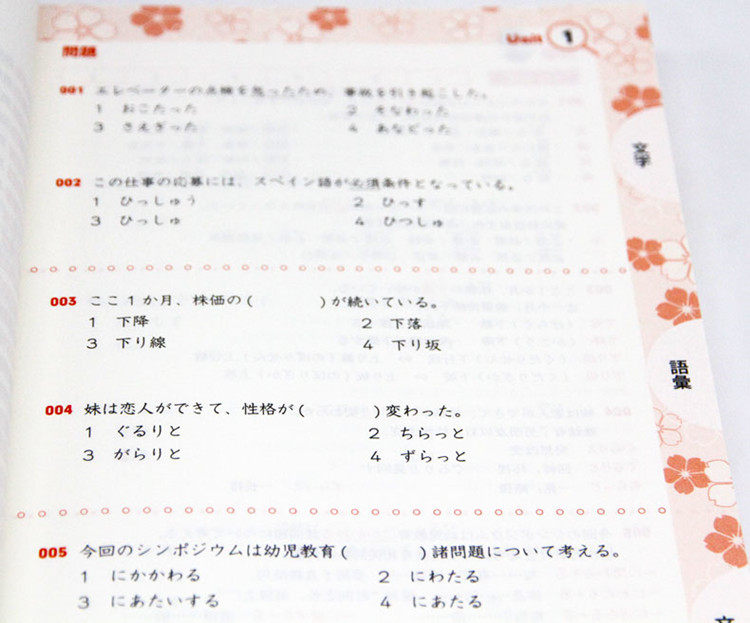 Unit 1
問題
001 エレベーターの点検を怠ったため、事故を引き起こした。
1 おこたった 2 そなわった
3 さえぎった 4 あなどった
文字
002 この仕事の応募には、スペイン語が必須条件となっている。
1 ひっしゅう 2 ひっす
3 ひっしゅ 4 ひつしゅ
003 ここ1か月、株価の( )が続いている。
1 下降 2 下落
3 下り線 4 下り坂
語彙
004 妹は恋人ができて、性格が( )変わった。
1 ぐるりと 2 ちらっと
3 がらりと 4 ずらっと
005 今回のシンポジウムは幼児教育( )諸問題について考える。
1 にかかわる 2 にわたる
3 にあたいする 4 にあたる
文